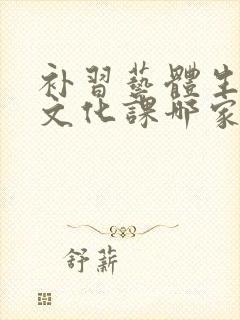 补習藝體生
文化課哪家
舒薪